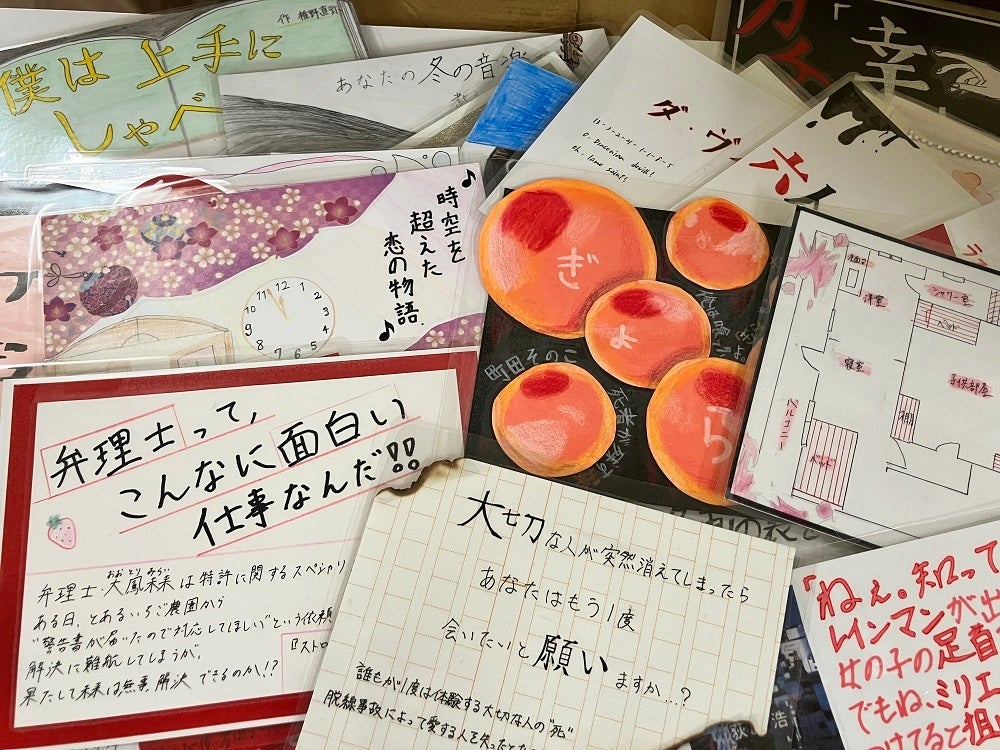 作 椎野直弥
僕は上手に
しゃべ
あなたの冬の音楽
ダ・ヴィ
13-3-2-21-1-1-8-5
O, Draconian devil!
Oh, lame saint!
「幸
♪時空を
超えた
恋の物語♪
11 12 1
10 2
9 3
8 4
7 6 5
ぎ
ょ
ら
町田そのこ
死者が残す
洋室
シャワー室
ベッド
寝室
子供部屋
棚
ベルコニー
ベッド
弁理士って、
こんなに面白い
仕事なんだ!!
弁理士・大鳳未来は特許に関するスペシャリ
おおとりみらい
ある日、とあるいちご農園から
"警告書が届いたので対応してほしい"という依頼
解決に難航してしまうが、
果たして未来は無事、解決できるのか!?
『ストロ
大切な人が突然消えてしまったら
あなたはもう1度
会いたいと願いますか…?
誰もが1度は体験する大切な人の"死"
脱線事故によって愛する人を失った
「ねぇ。知って
レインマンが出
女の子の足首
でもね、ミリエ
けてると狙
荻 浩